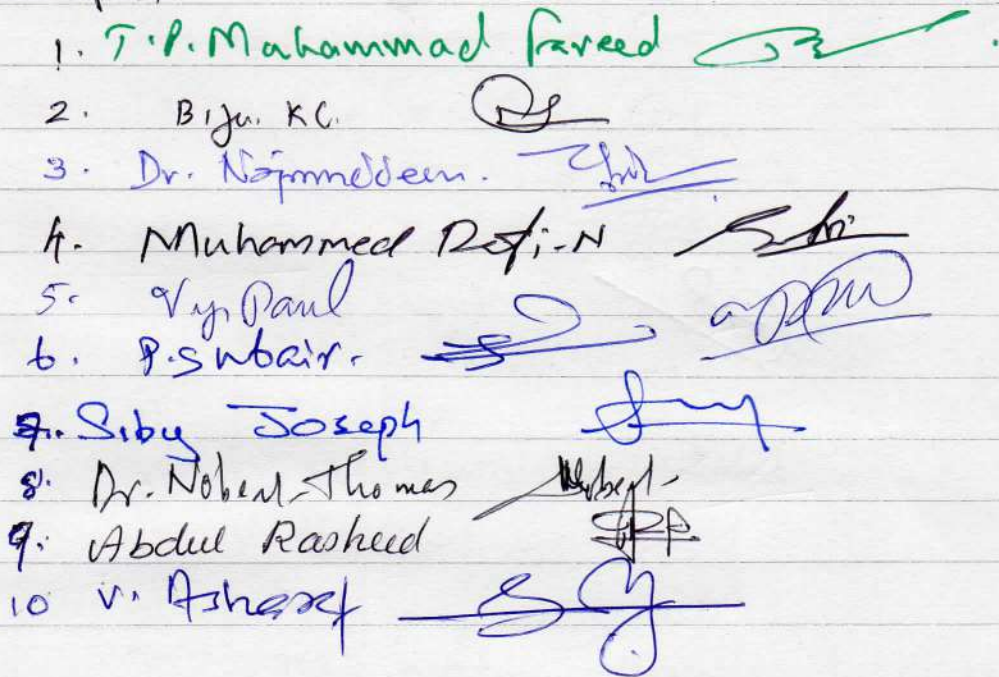 1. T.P. Muhammad Fareed
2. Biju. K.C.
3. Dr. Najmuddeen.
4. Muhammed Rafi-N
5. V.y. Paul
6. P. Subair.
7. Siby Joseph
8. Dr. Nobert Thomas
9. Abdul Rasheed
10 V. Asharaf